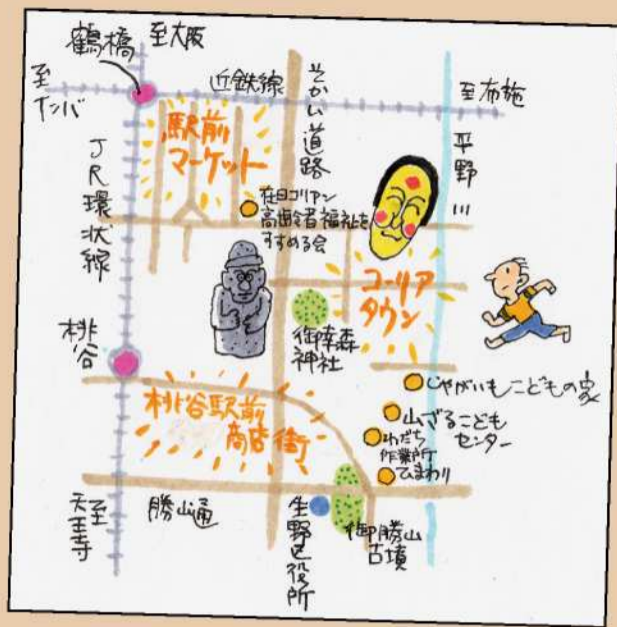 鶴橋
至大阪
至
ナンバ
近鉄線
そかい道路
至布施
平野川
JR環状線
駅前
マーケット
在日コリアン
高齢者福祉を
すすめる会
コーリア
タウン
御幸森
神社
桃谷
桃谷駅前
商店街
じゃがいもこどもの家
山ざるこども
センター
わだち
作業所
ひまわり
至
天王寺
勝山通
生野区役所
御勝山
古墳